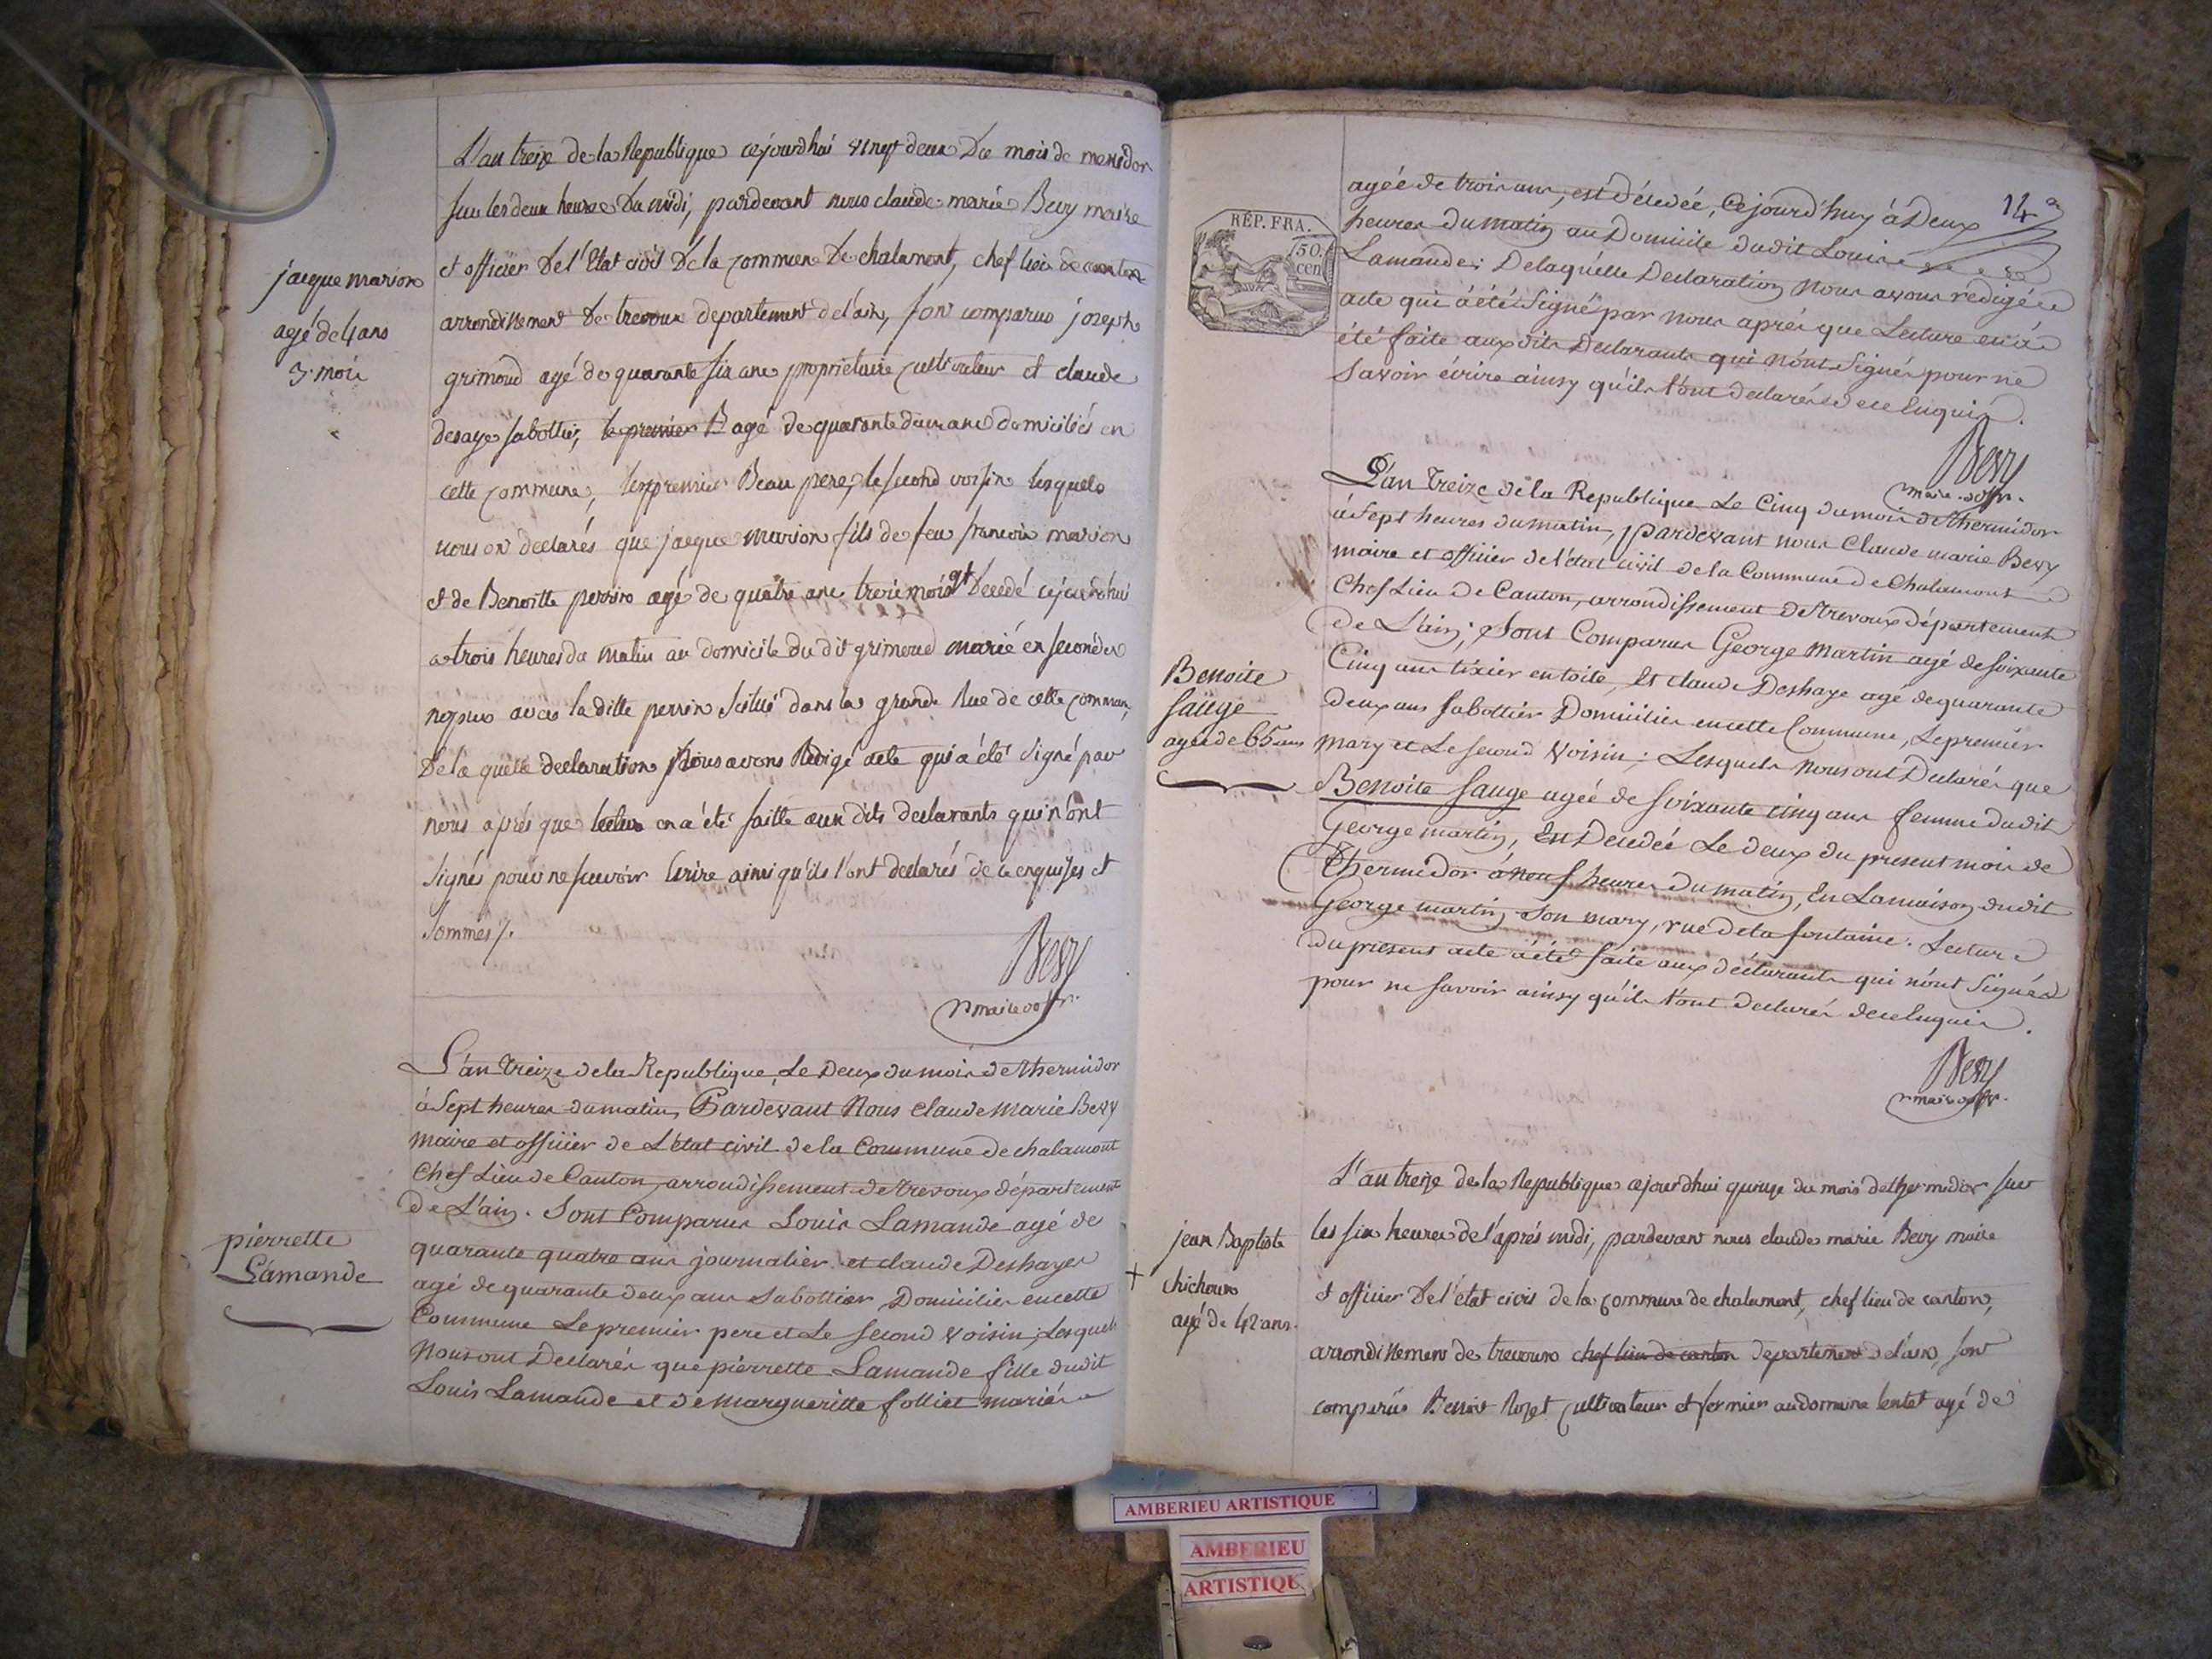 L'an treize de la Republique cejourdhui vingt deux Du mois de messidor
sur les deux heures Du midi, pardevant nous claude marie Bevy maire
et officier De l'Etat civil De la commune De chalamont, chef lieu de canton
jacque marion
arrondissement de trevoux departement de l'ain, son comparus joseph
agé de 4 ans
3 mois
grimoud agé de quarante six ans proprietaire cultivateur et claude
desaye sabottier, le premier B agé de quarante deux ans domiciliés en
cette commune, le premier Beau pere, le second voisin lesquels
nous on declarés que jacque marion fils de feu francois marion
et de Benoitte perrin agé de quatre ans trois mois est Decedé cejourdhui
a trois heures du matin au domicile du dit grimoud marié en seconde
avec la ditte perrin scitué dans la grande Rue de cette commune,
De la quelle declaration Nous avons Redigé acte qui a été signé par
nous aprés que lecture en a été faitte aux dits declarants qui n'ont
signés pour ne scavoir Ecrire ainsi qu'ils l'ont declarés de ce enquises et
sommés /.
Bevy
maire
L'an Treize de la Republique, Le Deux du mois de thermidor
à Sept heures du matin, Pardevant Nous Claude Marie Bevy
Maire et officier de L'état civil de la Commune de chalamont
Chef Lieu de Canton, arrondissement de trevoux département
de L'ain. Sont Comparus Louis Lamande agé de
pierrette
Lamande
quarante quatre ans journalier et claude Deshayes
agé de quarante deux ans Sabottier Domicilies en cette
Commune Le premier pere et Le Second Voisin; Lesquels
Nous ont Declarés que pierrette Lamande fille dudit
Louis Lamande et de Margueritte folliet mariés
14
RÉP. FRA.
50.
cen.
agéé de trois ans, est Décedéé, Cejourd'huy à Deux
heures du matin au Domicile dudit Louis
Lamande; De laquelle Declaration Nous avons rédigé
acte qui à été Signé par nous aprés que Lecture en à
été faite aux dits Declarants qui n'ont Signés pour ne
Savoir écrire ainsy qu'ils l'ont declarés de ce Enquis.
Bevy
maire
L'an Treize de la Republique Le Cinq du mois de thermidor
à Sept heures du matin, pardevant nous Claude marie Bevy
maire et officier de l'état civil de la Commune de Chalamont
Chef Lieu de Canton, arrondissement de trevoux département
de L'ain; Sont Comparus George Martin agé de soixante
Benoite
sauge
ageé de 65 ans
Cinq ans tixier en toile, Et claude Deshaye agé de quarante
deux ans sabottier Domicilies en cette Commune, Le premier
mary et Le second Voisin; Lesquels Nous ont Declarés que
Benoite sauge ageé de soixante cinq ans femme dudit
George martin, Est Decedeé Le deux du present mois de
Thermidor à neuf heures du matin, En La maison dudit
George martin son mary, rue de la fontaine. Lecture
du present acte à été faite aux déclarants qui n'ont Signés
pour ne savoir ainsy qu'ils l'ont declarés de ce Enquis.
Bevy
maire
L'an treize de la Republique cejourdhui quinze du mois dethermidor sur
les six heures de l'aprés midi, pardevant nous claude marie Bevy maire
jean Baptiste
chichoux
agé de 42 ans.
et officier De l'état civil de la commune de chalamont, chef lieu de canton,
arrondissement de trevoux chef lieu de canton departement de l'ain, sont
comparûs Benoit Rozet cultivateur et fermier au domaine agé de
AMBERIEU ARTISTIQUE
AMBERIEU
ARTISTIQU